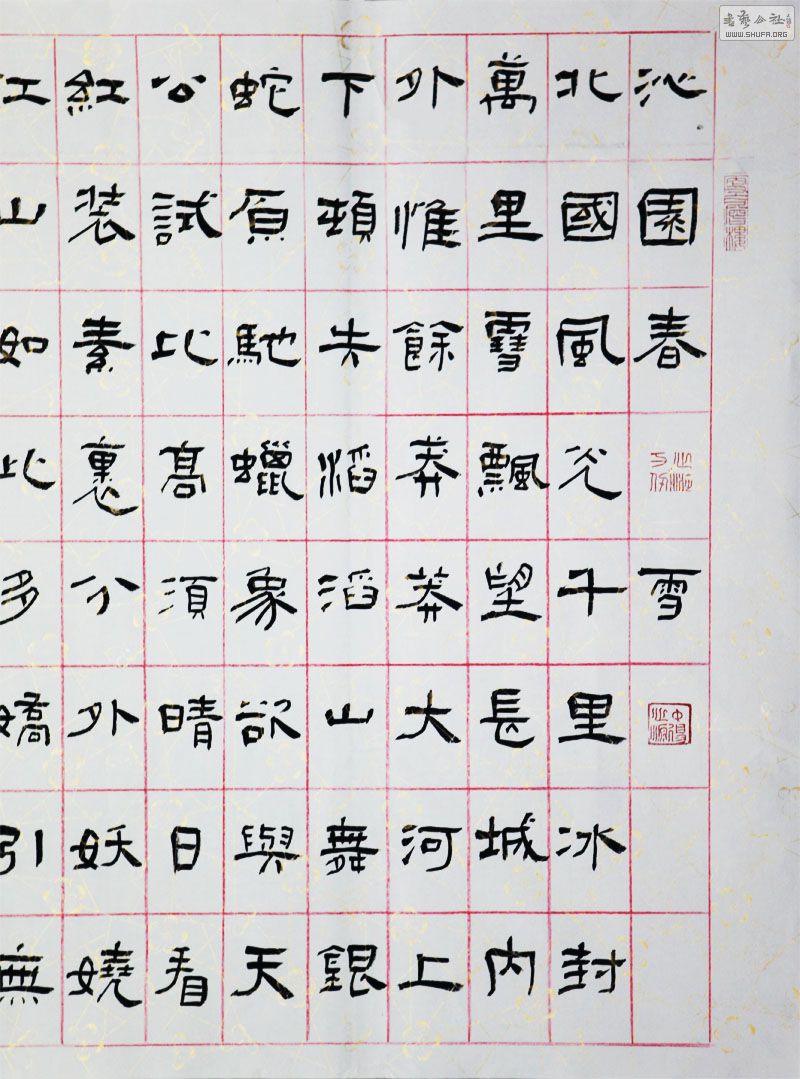 沁園春雪
北國風光千里冰封
萬里雪飄望長城內
外惟餘莽莽大河上
下頓失滔滔山舞銀
蛇原馳蠟象欲與天
公試比高須晴日看
紅装素裹分外妖嬈
江山如此多嬌引無
中得心源
書藝公社
WWW.SHUFA.ORG